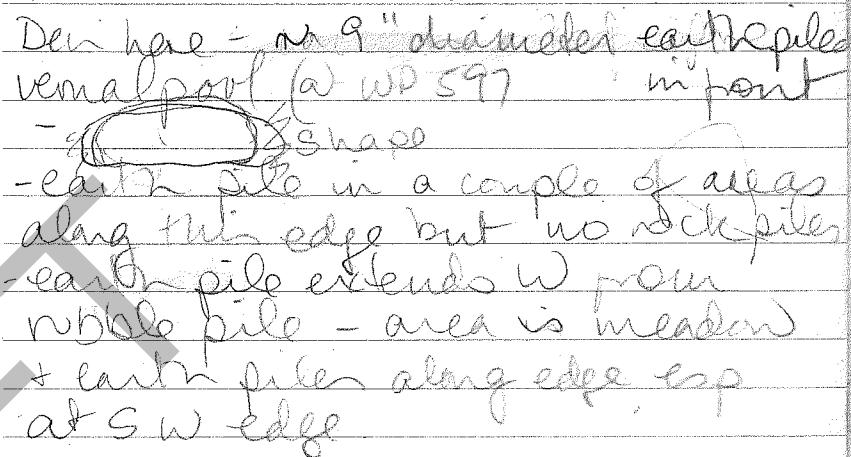 Den here - ~ 9" diameter earth piled
vernal pool @ WP 597 in front
- shape
- earth pile in a couple of areas
along this edge but no rock piles
- earth pile extends W from
rubble pile - area is meadow
+ earth piles along edge esp
at SW edge.